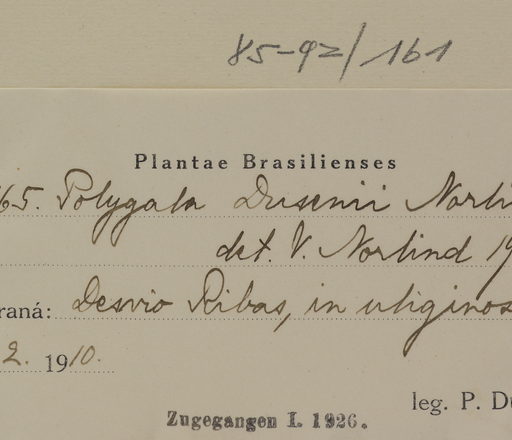 85-92/161
Plantae Brasilienses
65. Polygala Dusenii Norli
det. V. Norlind 19
raná: Desvio Ribas, in uliginos
2. 1910.
leg. P. Du
Zugegangen I. 1926.